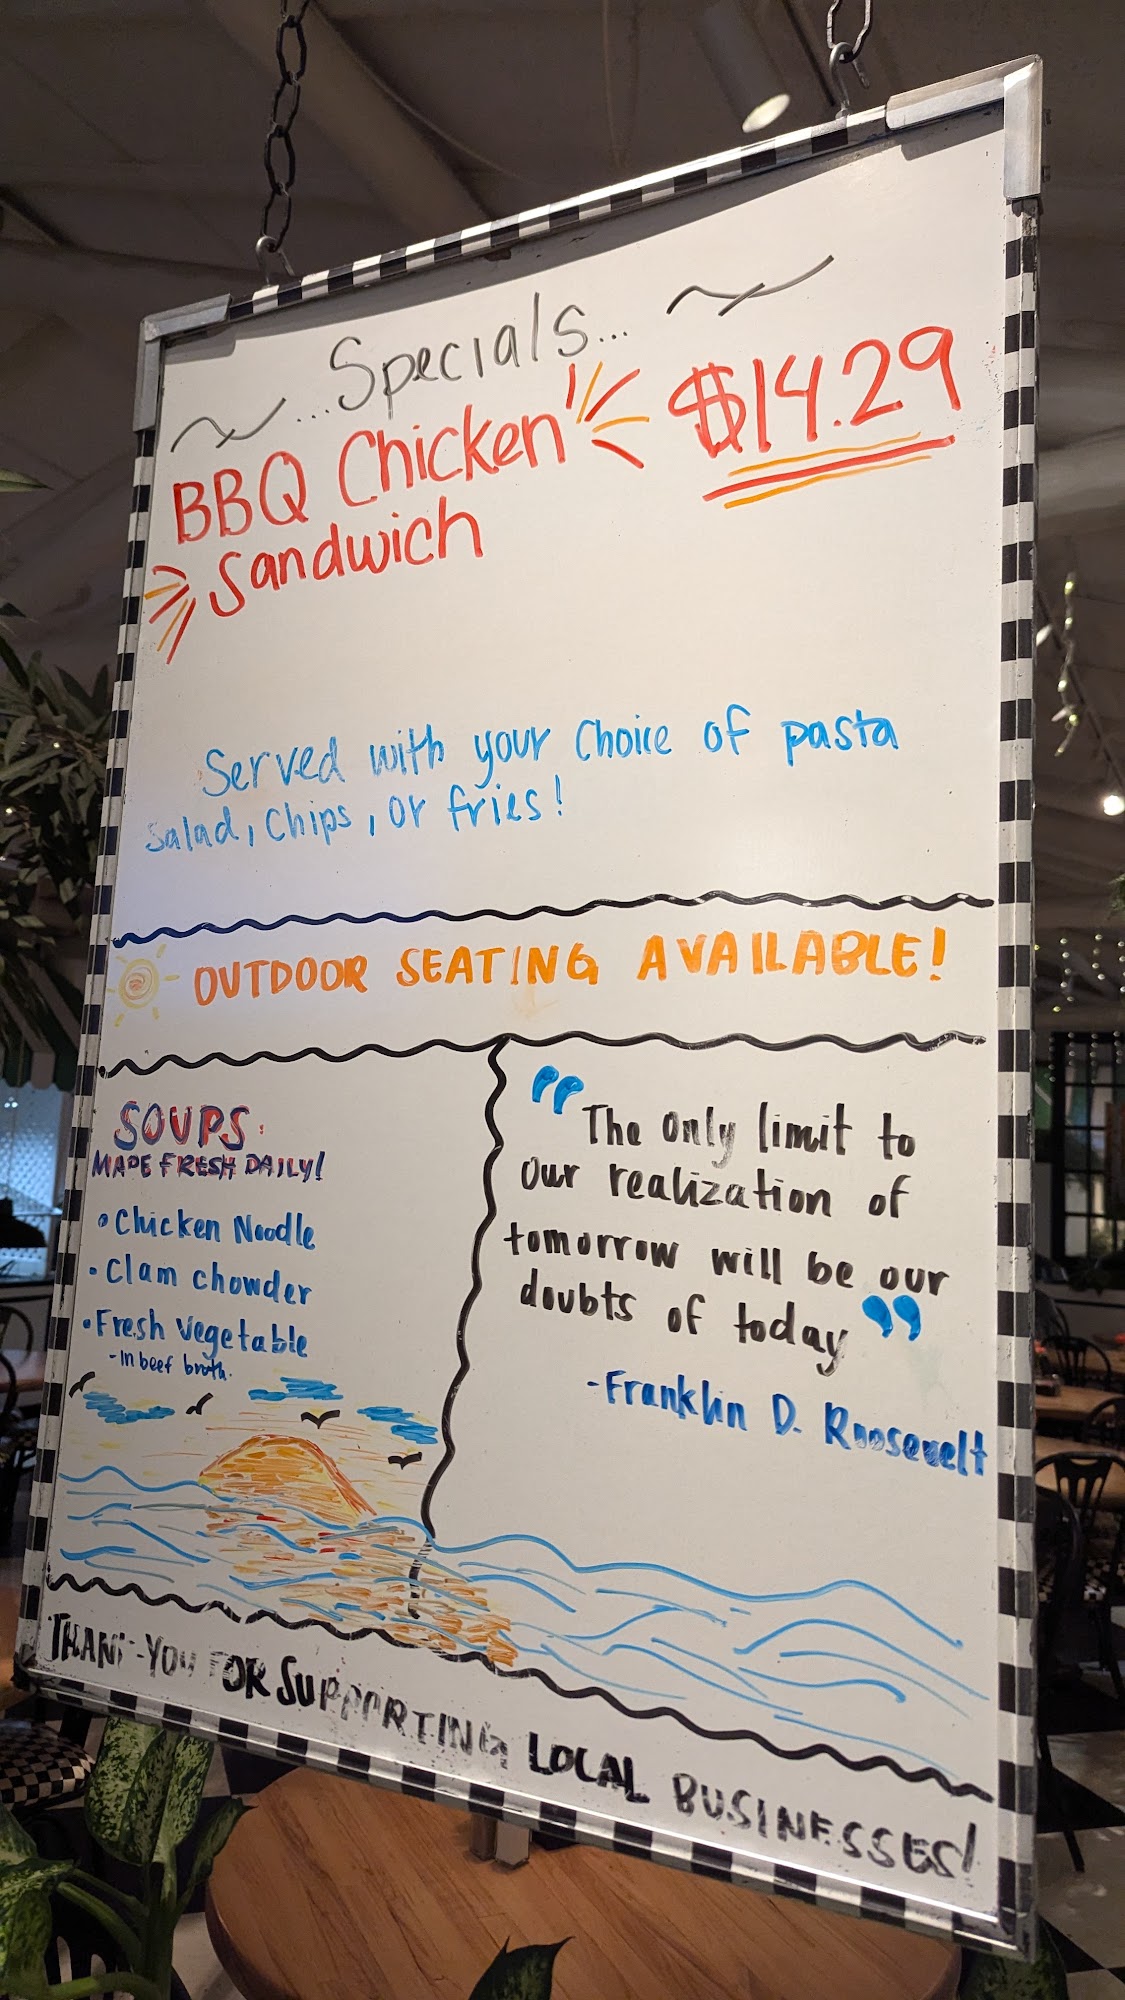 ...Specials...
BBQ Chicken $14.29
Sandwich
Served with your choice of pasta
salad, chips, or fries!
OUTDOOR SEATING AVAILABLE!
SOUPS:
MADE FRESH DAILY!
• Chicken Noodle
• Clam chowder
• Fresh vegetable
- In beef broth.
"The only limit to
our realization of
tomorrow will be our
doubts of today"
- Franklin D. Roosevelt
THANK-YOU FOR SUPPORTING LOCAL BUSINESSES!